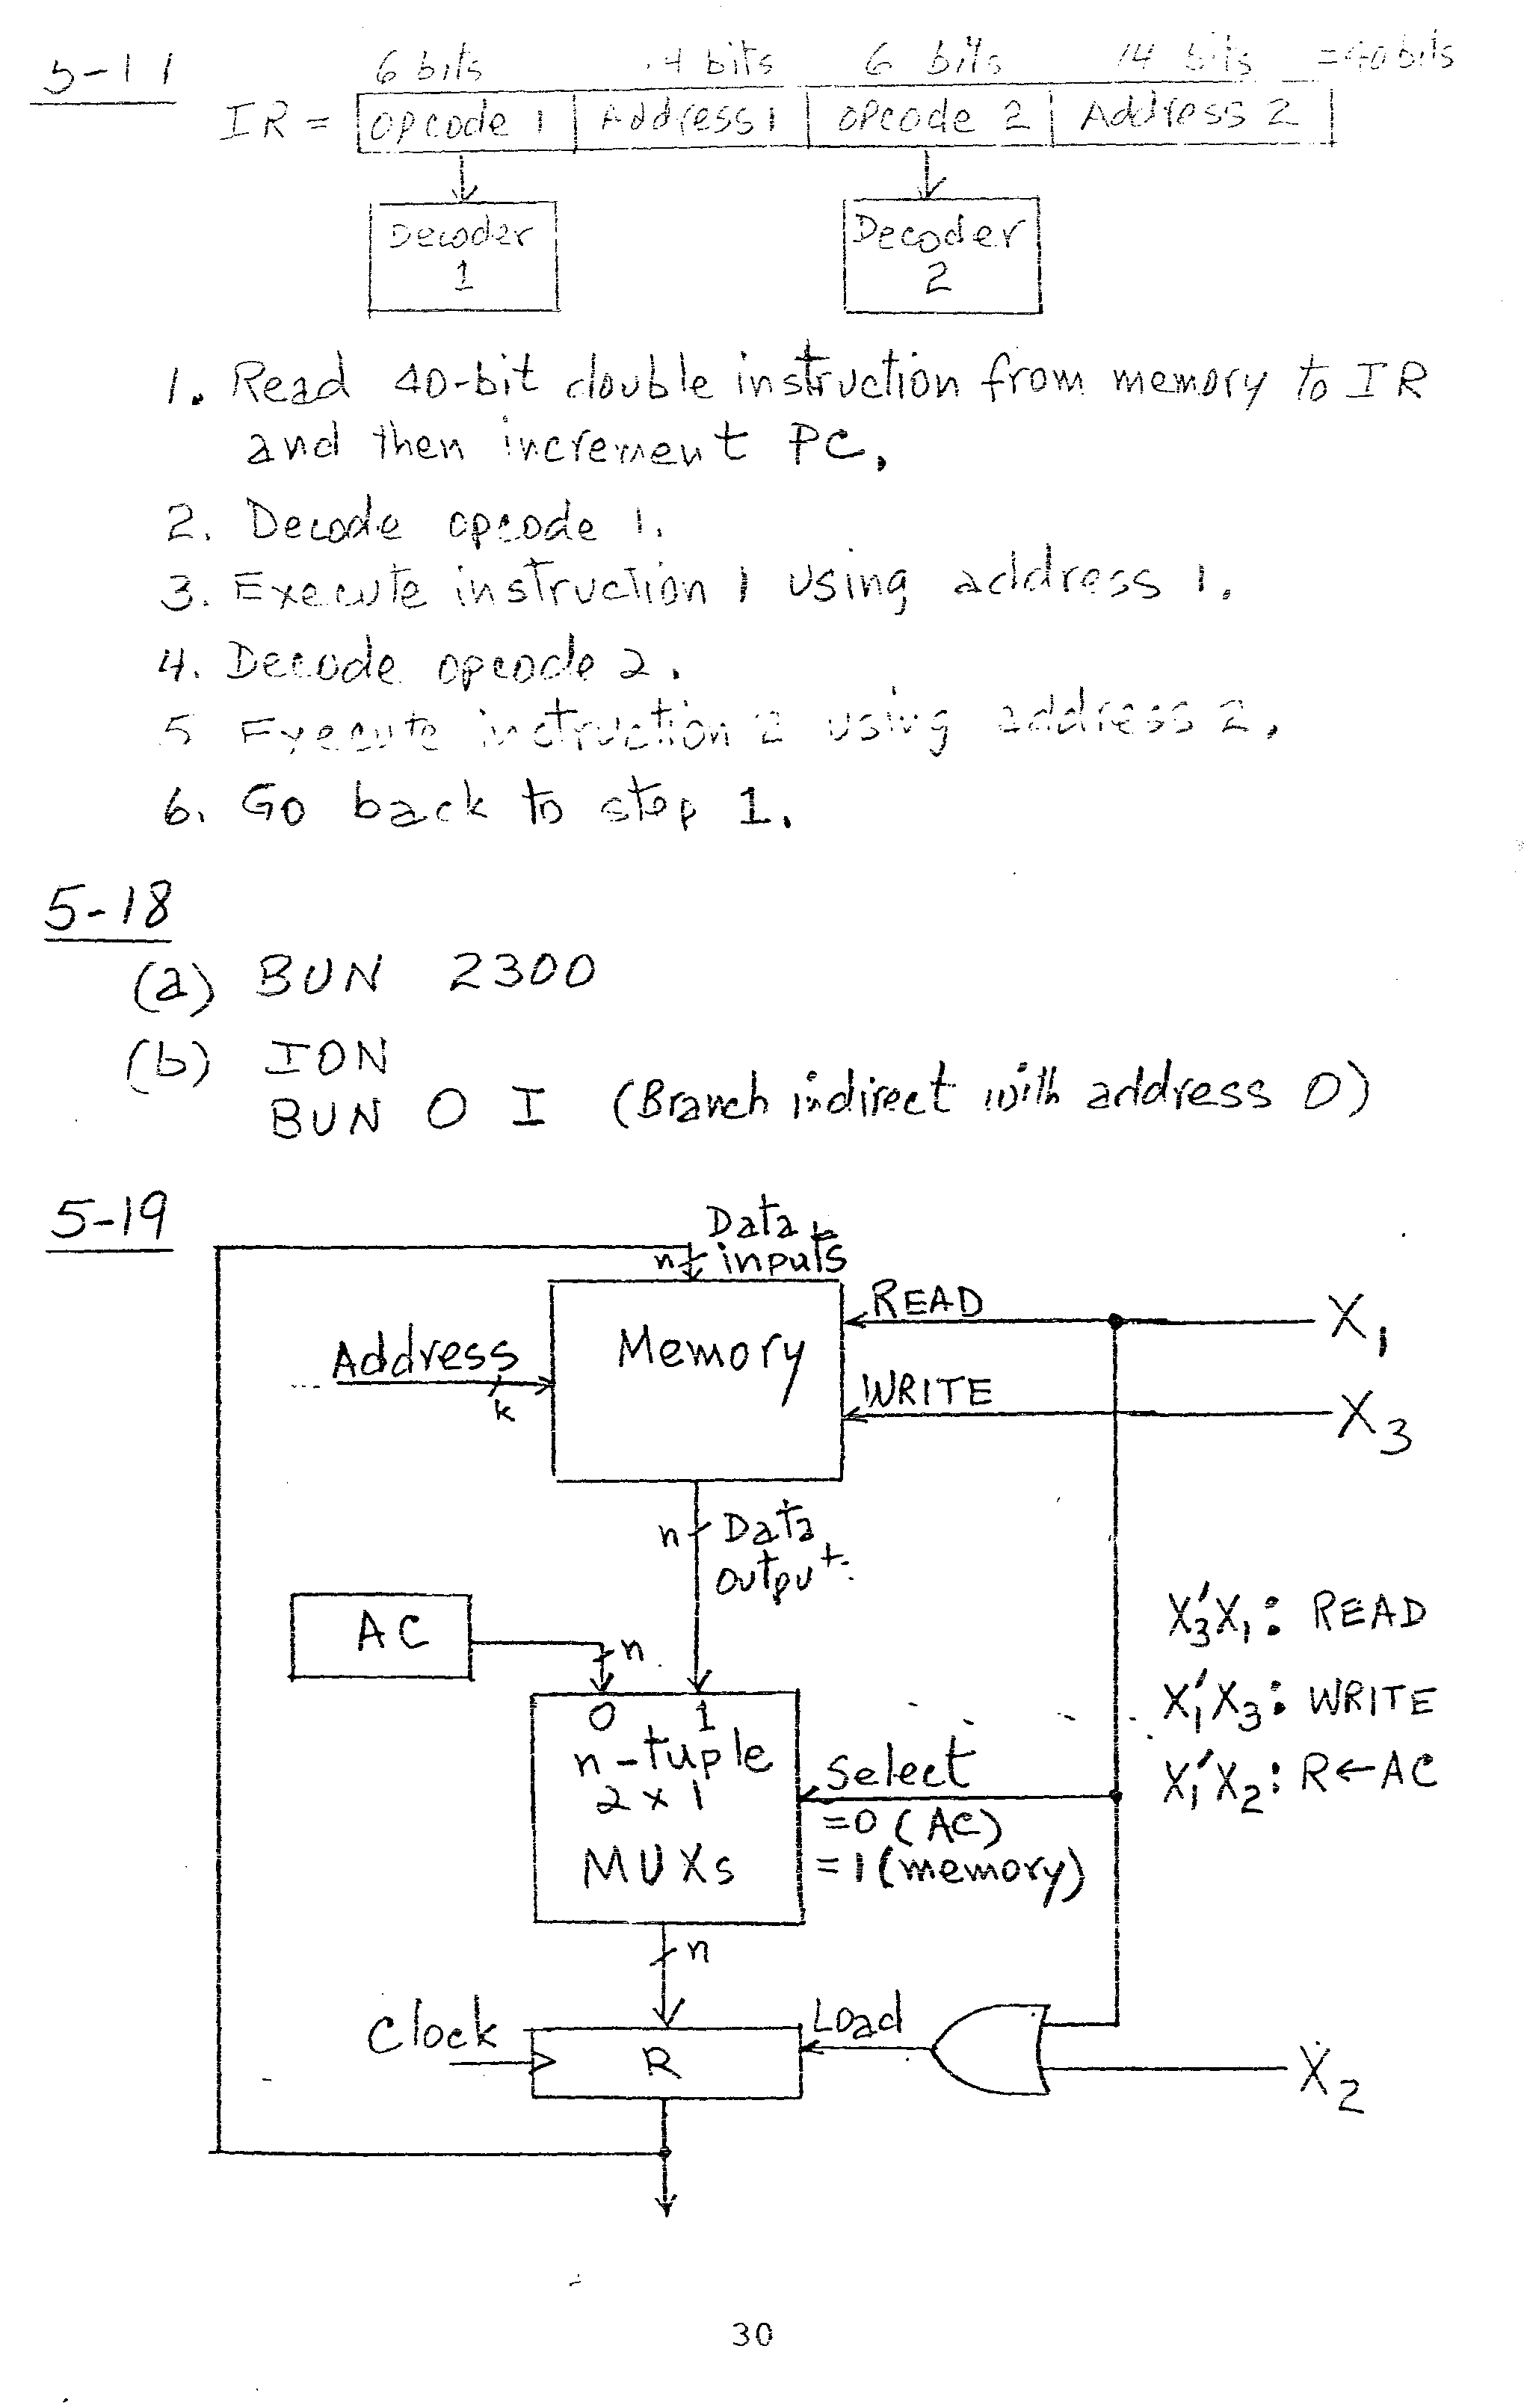 5-11
6 bits 14 bits 6 bits 14 bits = 40 bits
IR = opcode 1 Address 1 opcode 2 Address 2
Decoder 1
Decoder 2
1. Read 40-bit double instruction from memory to IR
and then increment PC.
2. Decode opcode 1.
3. Execute instruction 1 using address 1.
4. Decode opcode 2.
5 Execute instruction 2 using address 2.
6. Go back to step 1.
5-18
(a) BUN 2300
(b) ION
BUN 0 I (Branch indirect with address 0)
5-19
Data
n inputs
READ
X1
Address
k
Memory
WRITE
X3
n Data
output
AC
n
X3'X1: READ
X1'X3: WRITE
X1'X2: R←AC
0 1
n-tuple
2x1
MUXs
Select
=0 (AC)
=1 (memory)
n
Clock
R
Load
X2
30